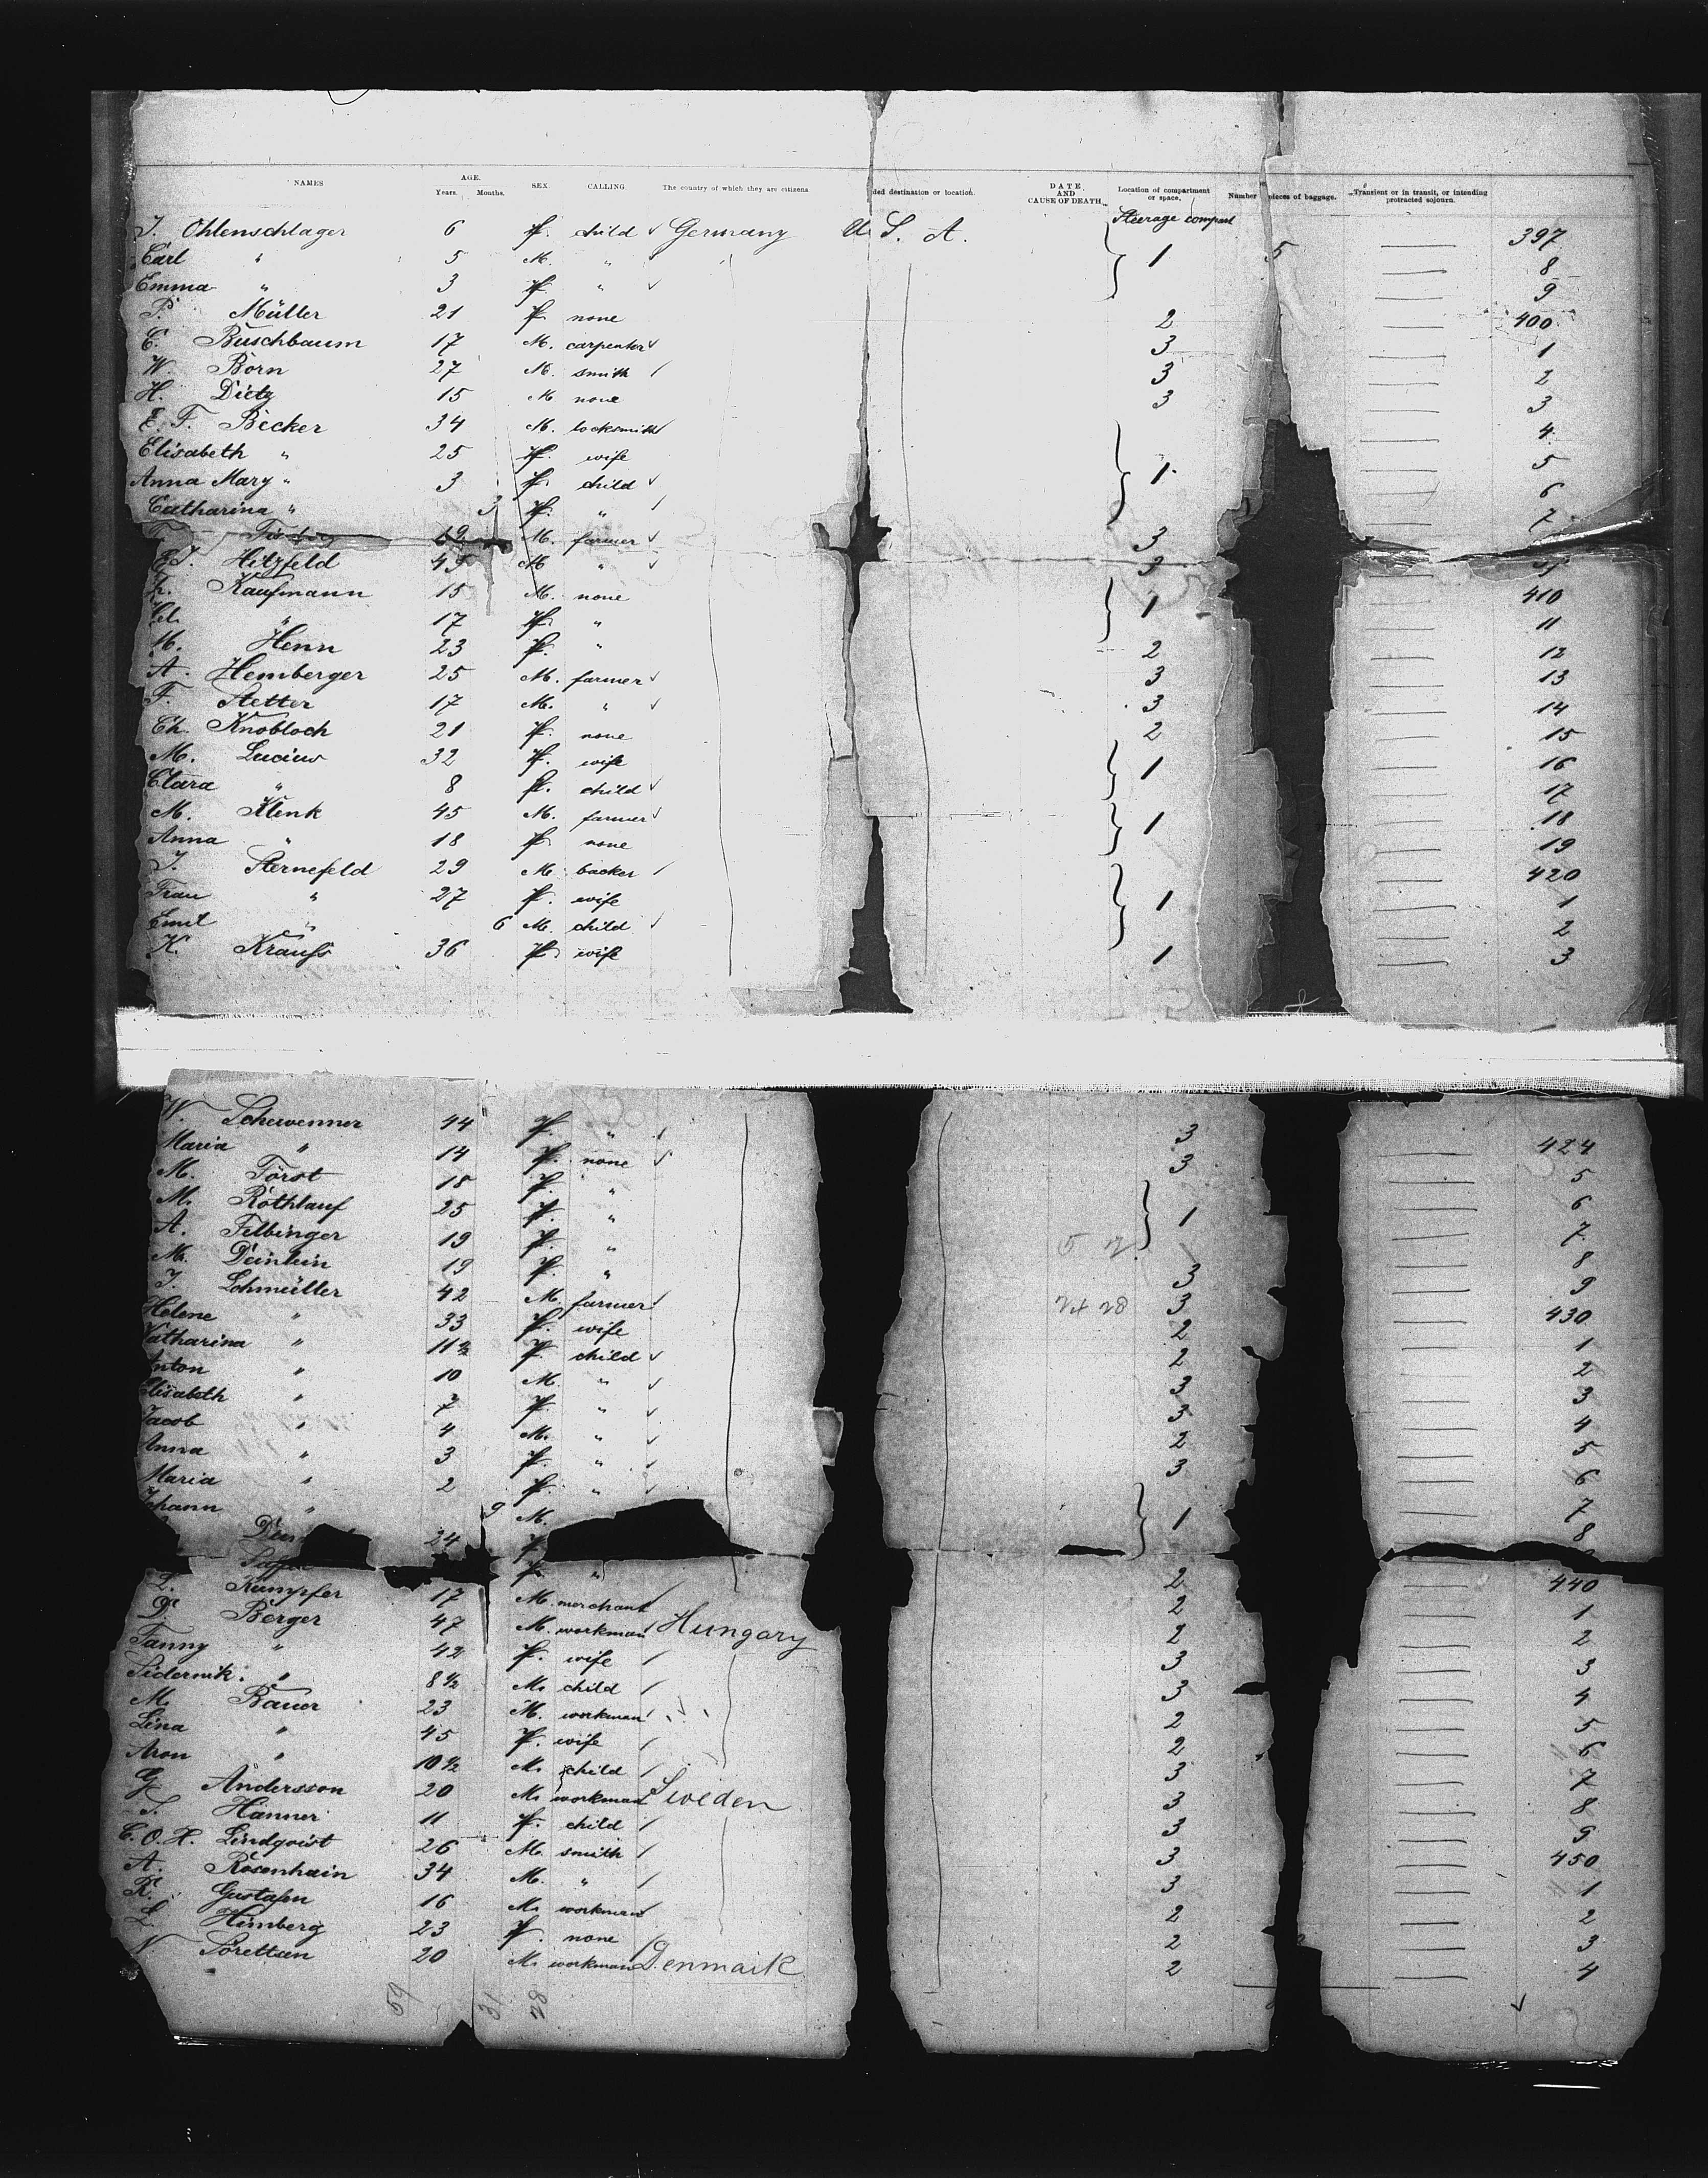 NAMES AGE. Years. Months. SEX. CALLING. The country of which they are citizens. ded destination or location. DATE AND CAUSE OF DEATH. Location of compartment or space. Number pieces of baggage. Transient or in transit, or intending protracted sojourn.
Steerage compart
J. Ohlenschlager 6 f. child Germany U. S. A. 1 5 397
Carl " 5 M. " 8
Emma " 3 f. " 9
P. Müller 21 f. none 2 400
C. Buschbaum 17 M. carpenter 3 1
W. Born 27 M. smith 3 2
H. Dietz 15 M none 3 3
E. F. Becker 34 M. locksmith 4
Elisabeth " 25 f. wife 1 5
Anna Mary " 3 f. child 6
Catharina " 3 f. " 7
19 M. farmer 3
Hitzfeld 45 M " 3
Kaufmann 15 M. none 1 410
" 17 f. " 11
M. Henn 23 f. " 2 12
A. Hemberger 25 M. farmer 3 13
F. Stetter 17 M. " 3 14
Ch. Knobloch 21 f. none 2 15
M. Lucius 32 f. wife 1 16
Clara " 8 f. child 17
M. Klenk 45 M. farmer 1 18
Anna " 18 f. none 19
J. Sternefeld 29 M. backer 420
Frau " 27 f. wife 1 1
Emil " 6 M. child 2
K. Krauss 36 f. wife 1 3
W. Schewenner 44 f. " 3 424
Maria " 14 f. none 3 5
M. Först 18 f. " 6
M. Rothlauf 25 f. " 1 7
A. Felbinger 19 f. " 8
M. Deinlein 19 f. " 3 9
J. Schmüller 42 M. farmer 3 430
Helene " 33 f. wife 2 1
Katharina " 11½ f. child 2 2
Anton " 10 M. " 3 3
Elisabeth " 7 f. " 3 4
Jacob " 4 M. " 2 5
Anna " 3 f. " 3 6
Maria " 2 f. " 7
Johann " 9 M. 1 8
24 f.
f. "
L. Kumpfer 17 M. merchant 2 440
D. Berger 47 M. workman Hungary 2 1
Fanny " 42 f. wife 2 2
Sidernik. " 8½ M. child 3 3
M. Bauer 23 M. workman 3 4
Lina " 45 f. wife 2 5
Aron " 10½ M. child 2 6
G. Andersson 20 M. workman Sweden 3 7
S. Hanner 11 f. child 3 8
C. O. H. Lindqvist 26 M. smith 3 9
A. Rosenhain 34 M. " 3 450
R. Gustafsn 16 M. workman 3 1
L. Himberg 23 f. none 2 2
N. 20 M. workman Denmark 2 3
2 4
59 31 28